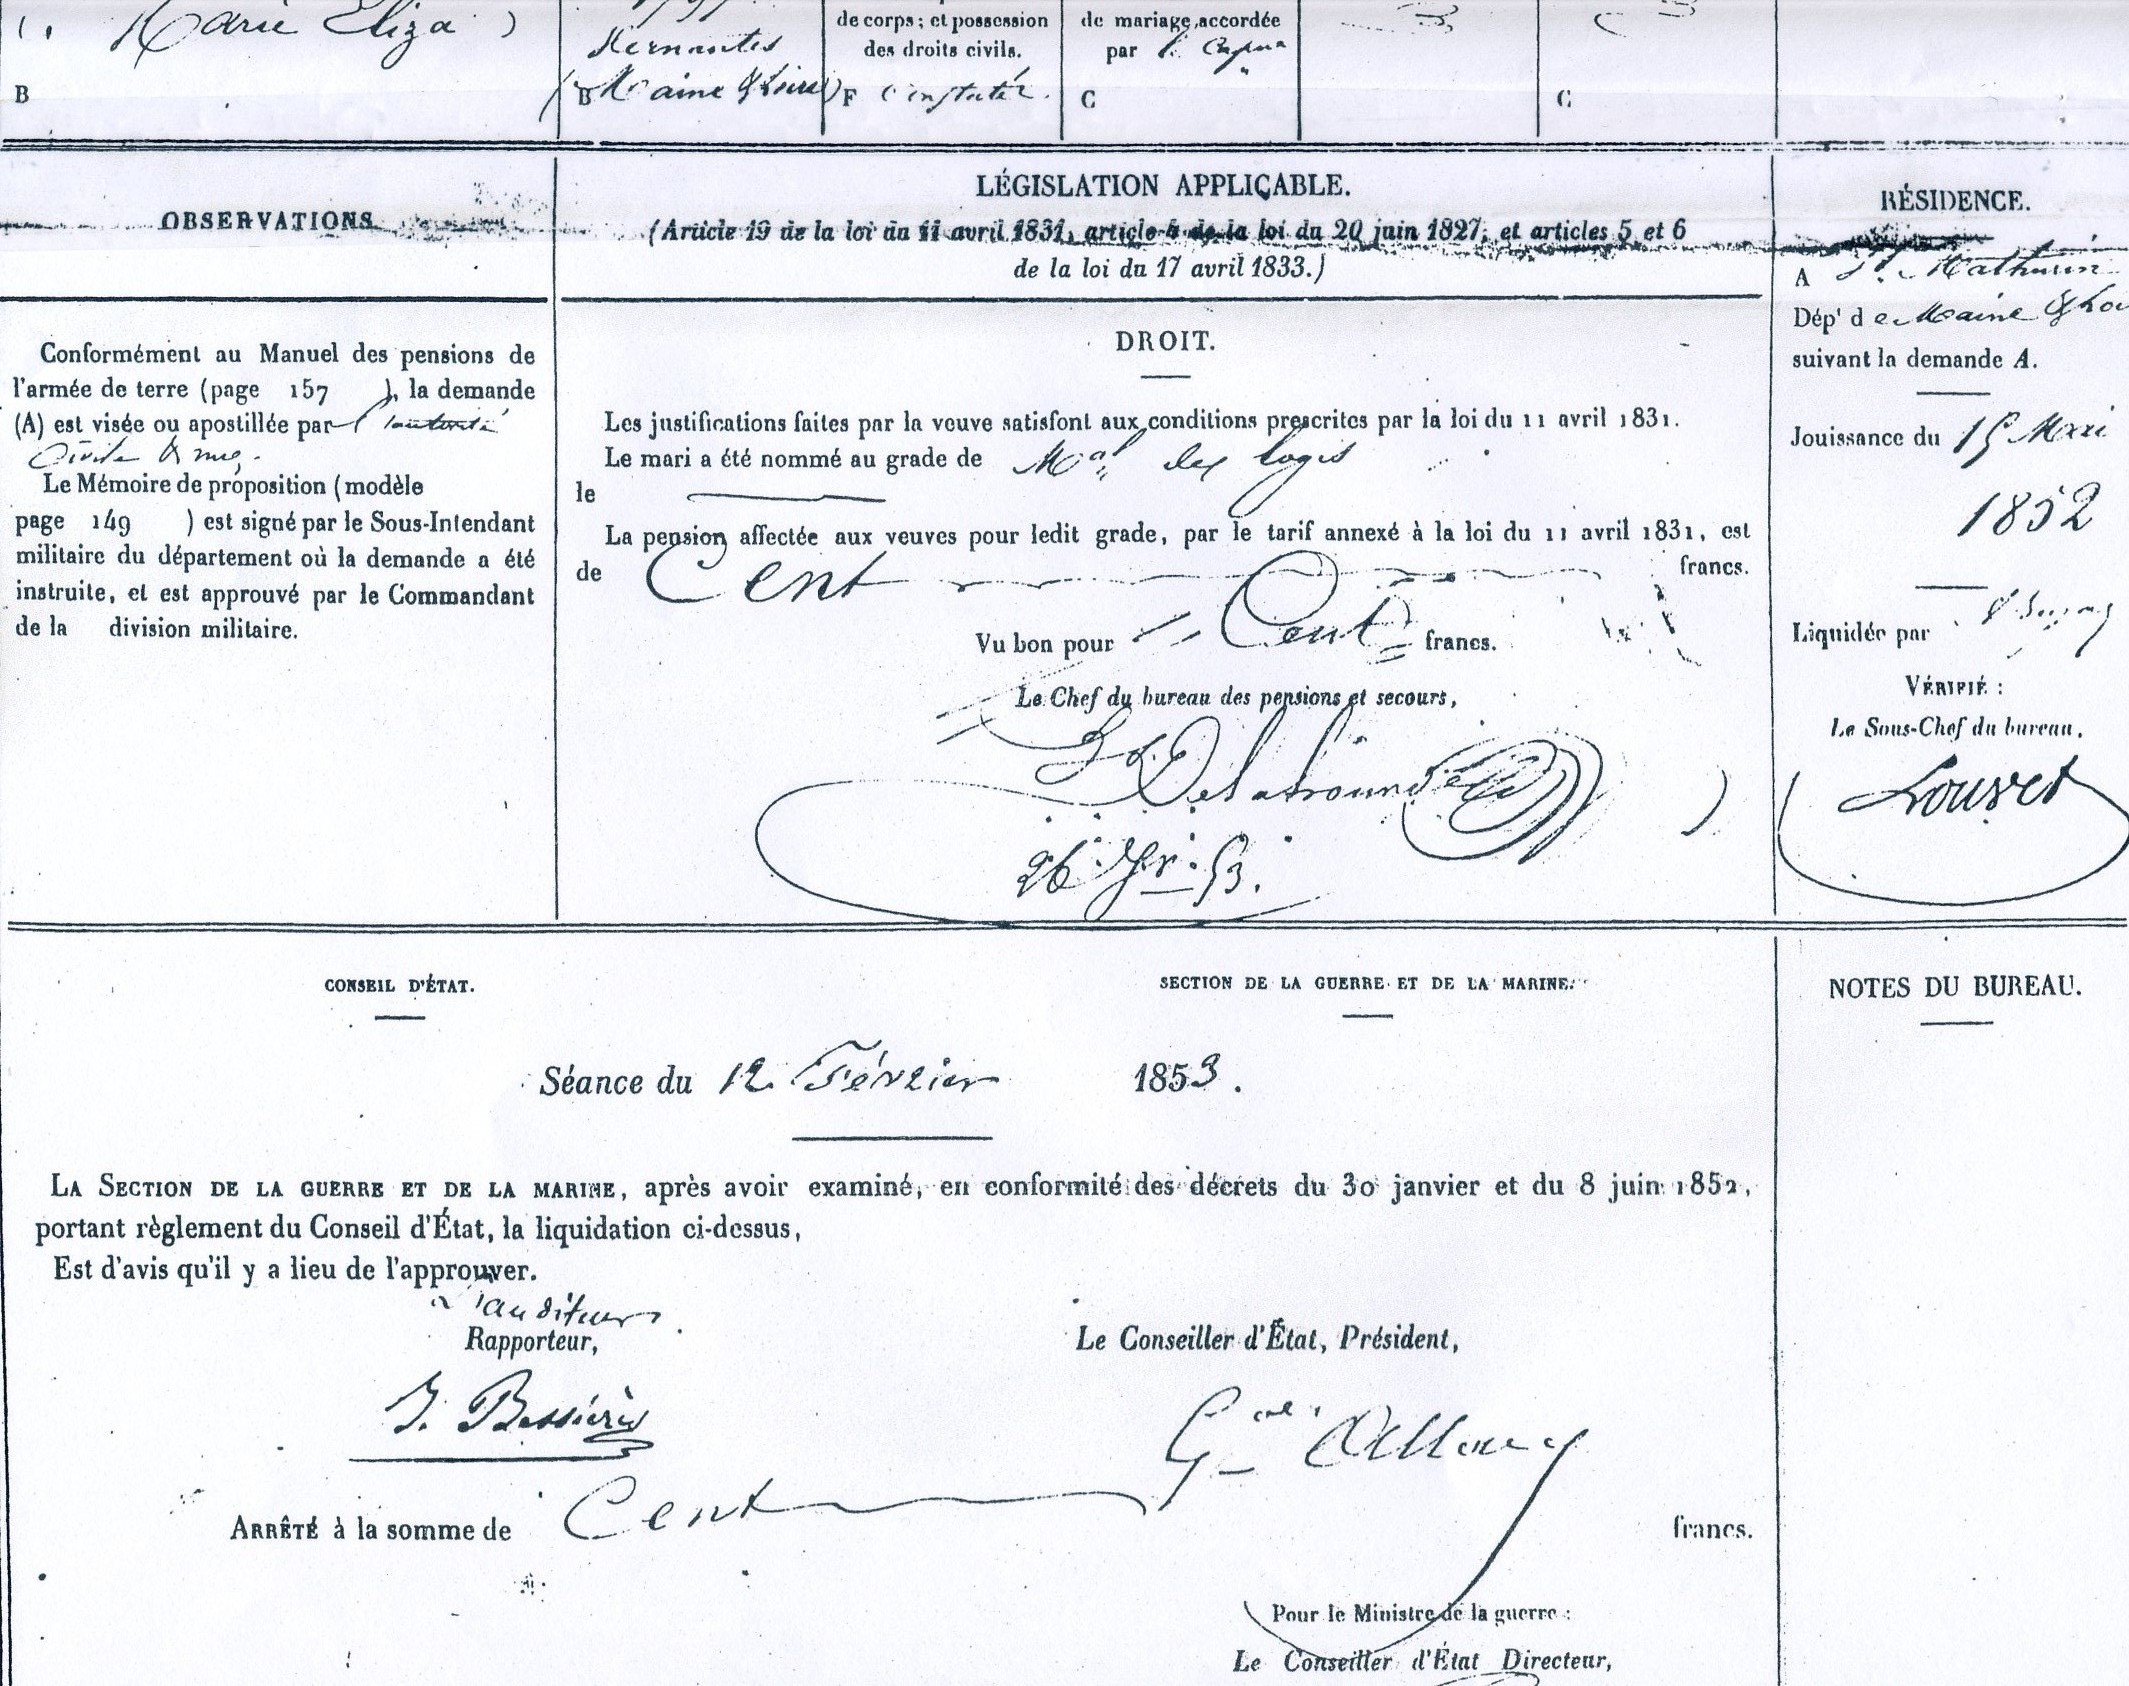 ( Marie Eliza )
B
Vernantes
( B Maine & Loire )
de corps ; et possession
des droits civils.
F Constaté.
de mariage, accordée
par
C
C
OBSERVATIONS
Conformément au Manuel des pensions de
l'armée de terre (page 157 ), la demande
(A) est visée ou apostillée par l'autorité
Civile &
Le Mémoire de proposition (modèle
page 149 ) est signé par le Sous-Intendant
militaire du département où la demande a été
instruite, et est approuvé par le Commandant
de la division militaire.
LÉGISLATION APPLICABLE.
(Article 19 de la loi du 11 avril 1831, article 4 de la loi du 20 juin 1827, et articles 5 et 6
de la loi du 17 avril 1833.)
DROIT.
Les justifications faites par la veuve satisfont aux conditions prescrites par la loi du 11 avril 1831.
Le mari a été nommé au grade de Mal des logis
le
La pension affectée aux veuves pour ledit grade, par le tarif annexé à la loi du 11 avril 1831, est
de Cent francs.
Vu bon pour Cent francs.
Le Chef du bureau des pensions et secours,
26 53.
RÉSIDENCE.
A St. Mathurin
Dépt de Maine & Loi
suivant la demande A.
Jouissance du 15 Mai
1852
Liquidée par
VÉRIFIÉ :
Le Sous-Chef du bureau,
Louvet
CONSEIL D'ÉTAT.
SECTION DE LA GUERRE ET DE LA MARINE.
Séance du 12 Février 1853.
LA SECTION DE LA GUERRE ET DE LA MARINE, après avoir examiné, en conformité des décrets du 30 janvier et du 8 juin 1852,
portant règlement du Conseil d'État, la liquidation ci-dessus,
Est d'avis qu'il y a lieu de l'approuver.
l'auditeur
Rapporteur,
J. Bessières
Le Conseiller d'État, Président,
Gral Allouy
ARRÊTÉ à la somme de Cent francs.
Pour le Ministre de la guerre :
Le Conseiller d'État Directeur,
NOTES DU BUREAU.